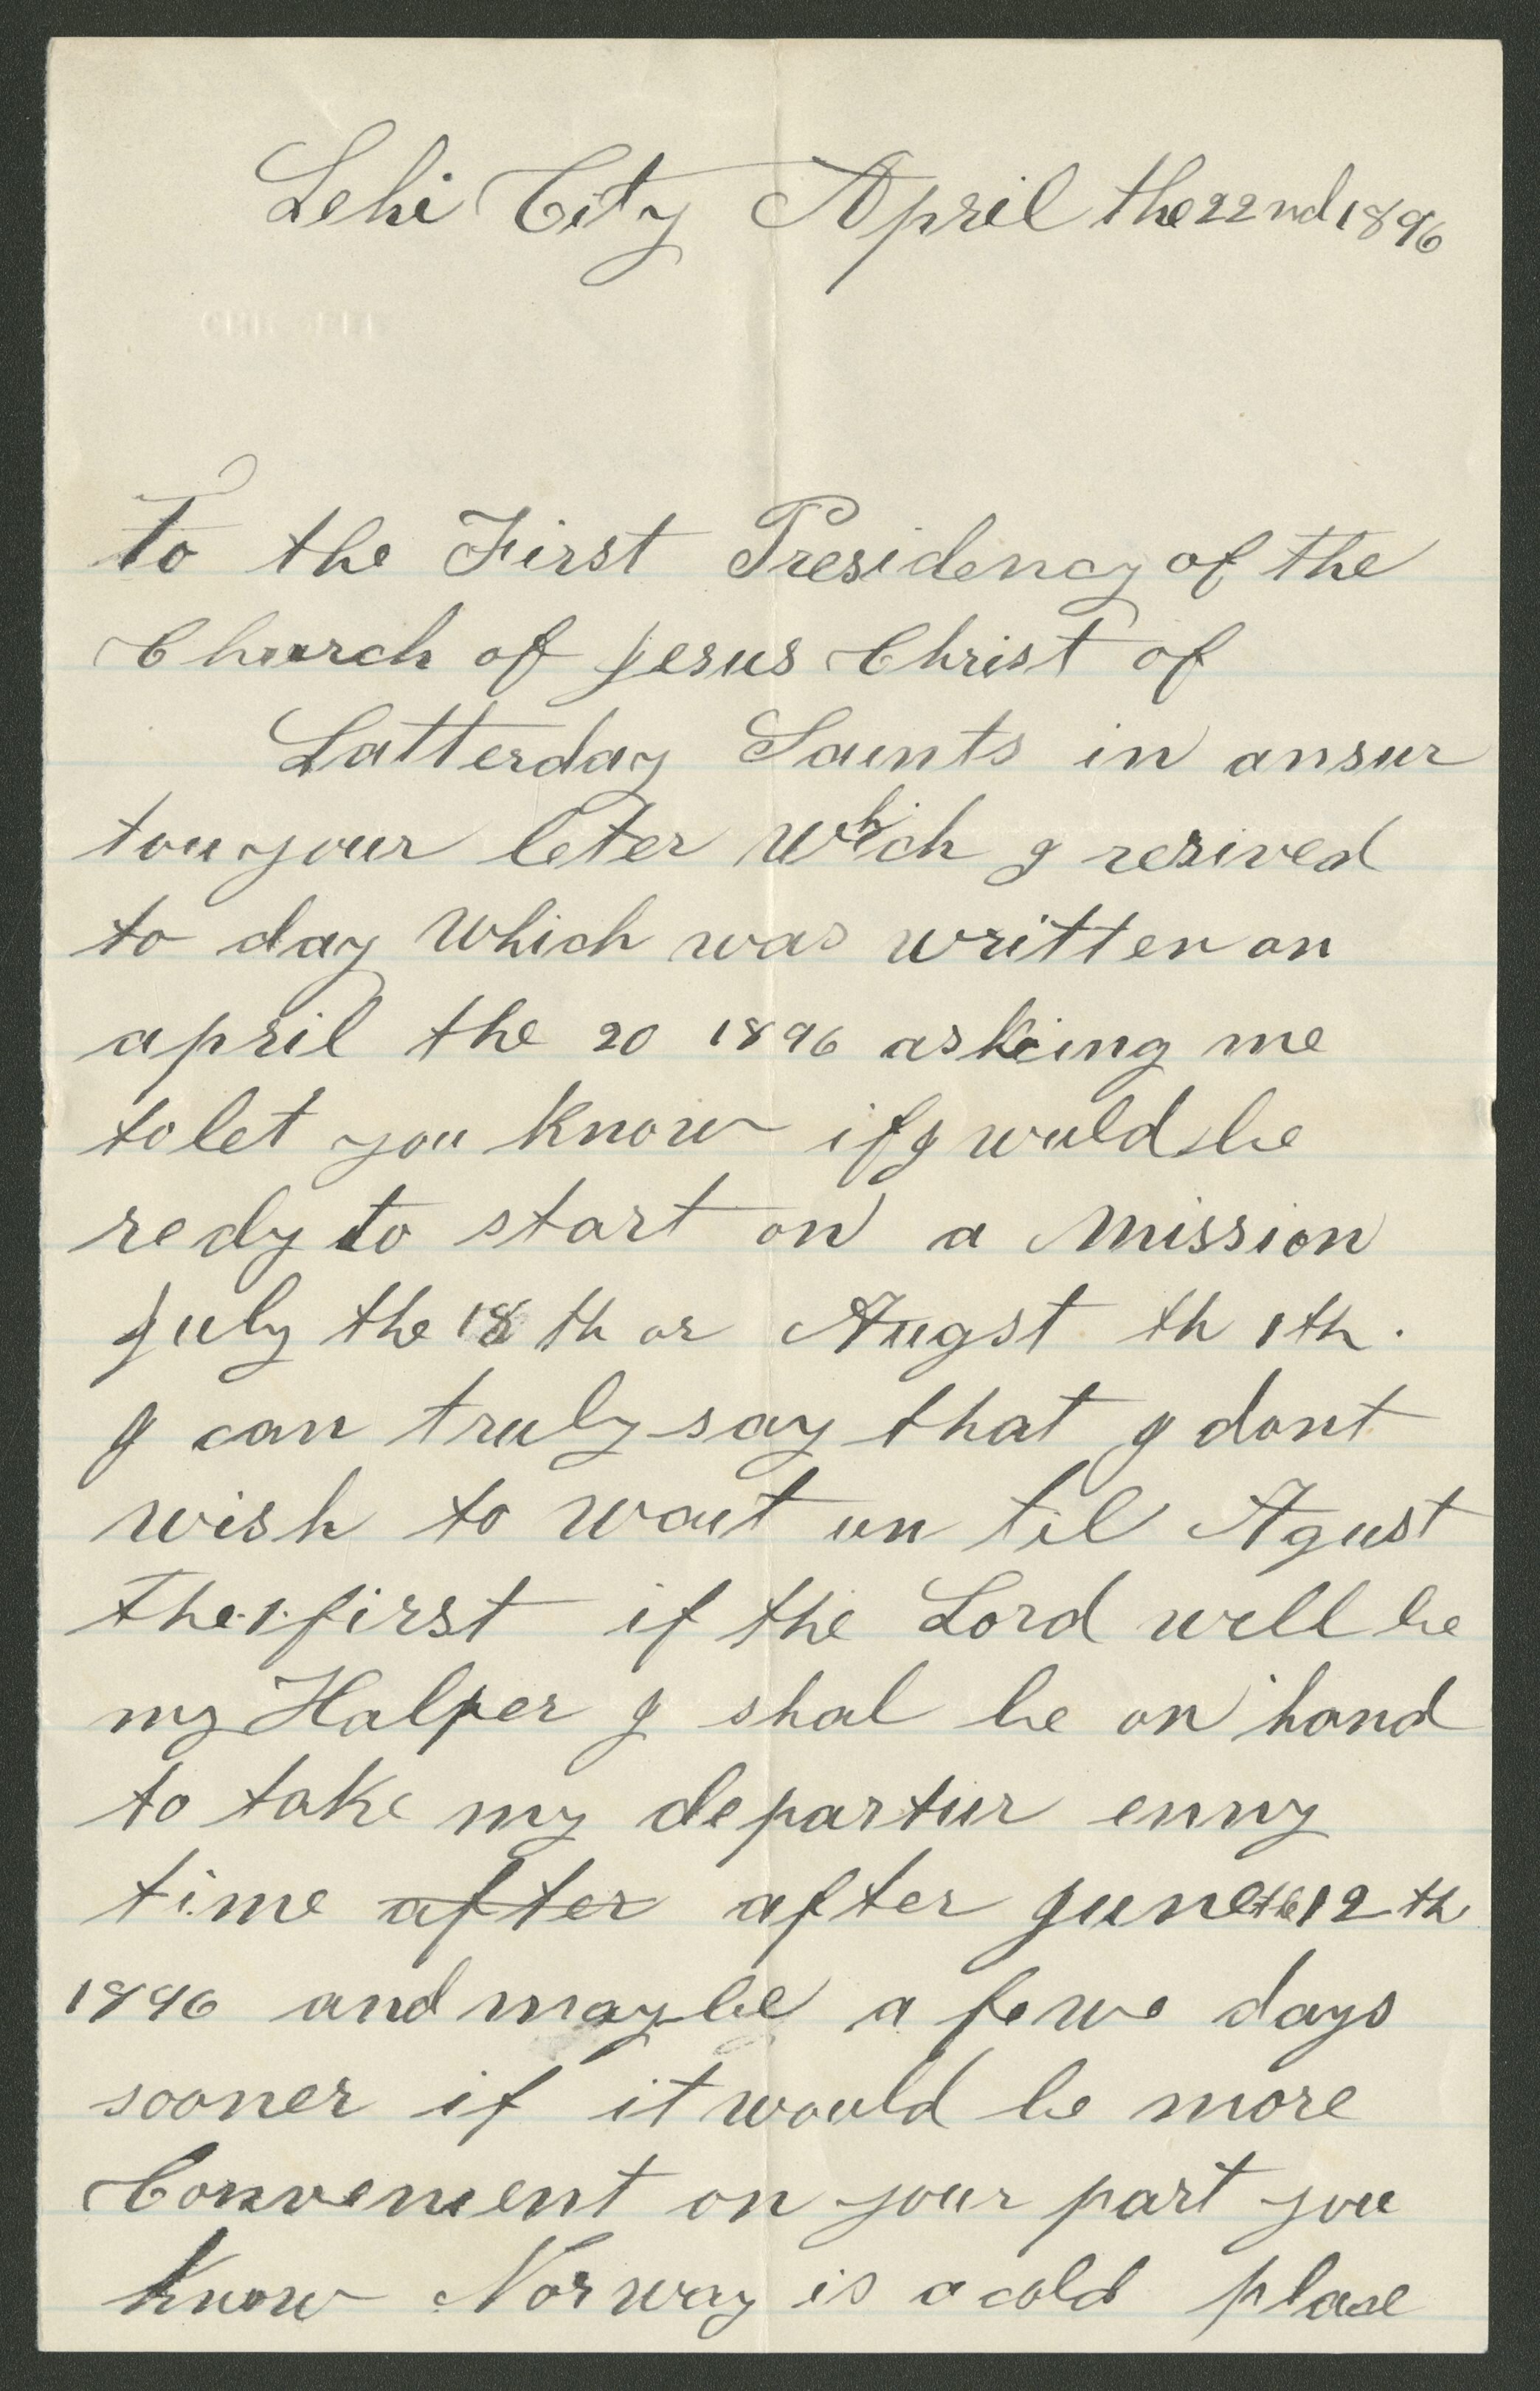 Lehi City April the 22nd 1896
To the First Presidency of the
Church of Jesus Christ of
Latterday Saints in ansur
tou your leter which I resived
to day which was written on
april the 20 1896 asking me
to let you know if I wuld be
redy to start on a Mission
July the 18 th or Augst th 1th.
I can truly say that I dont
wish to wait un til Agust
the 1. first if the Lord will be
my Halper I shal be on hand
to take my departur enny
time after after June the 12 th
1896 and maybe a fewe days
sooner if it would be more
Convenient on your part you
know Norway is a cold plase